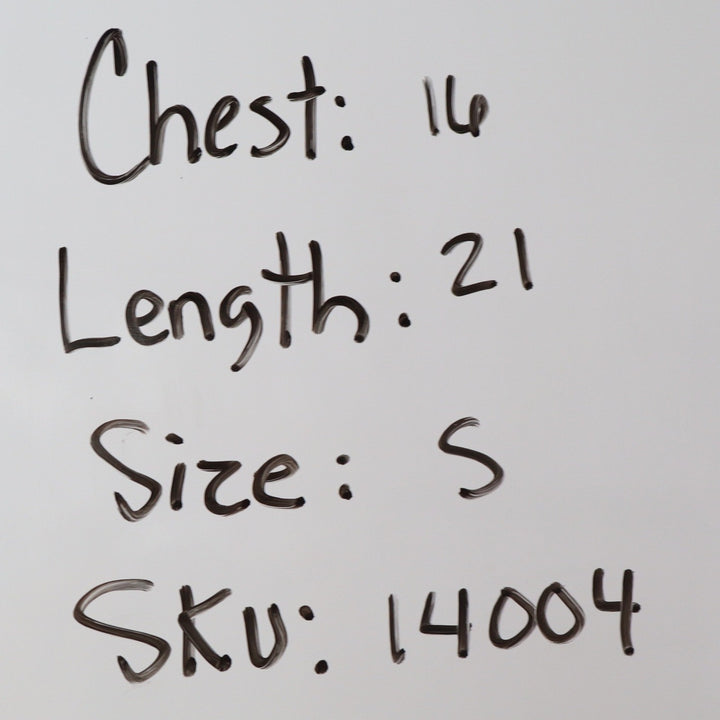 Chest: 16
Length: 21
Size: S
SKU: 14004